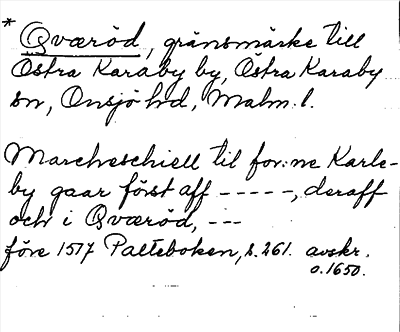 * Qværöd, gränsmärke till
Östra Karaby by, Östra Karaby
sn, Onsjö hd, Malm. l.
Marcheschiell til for:ne Karle-
by gaar först aff -----, deraff
och i Qværöd, ---
före 1517 Palteboken, s. 261. avskr.
o. 1650.